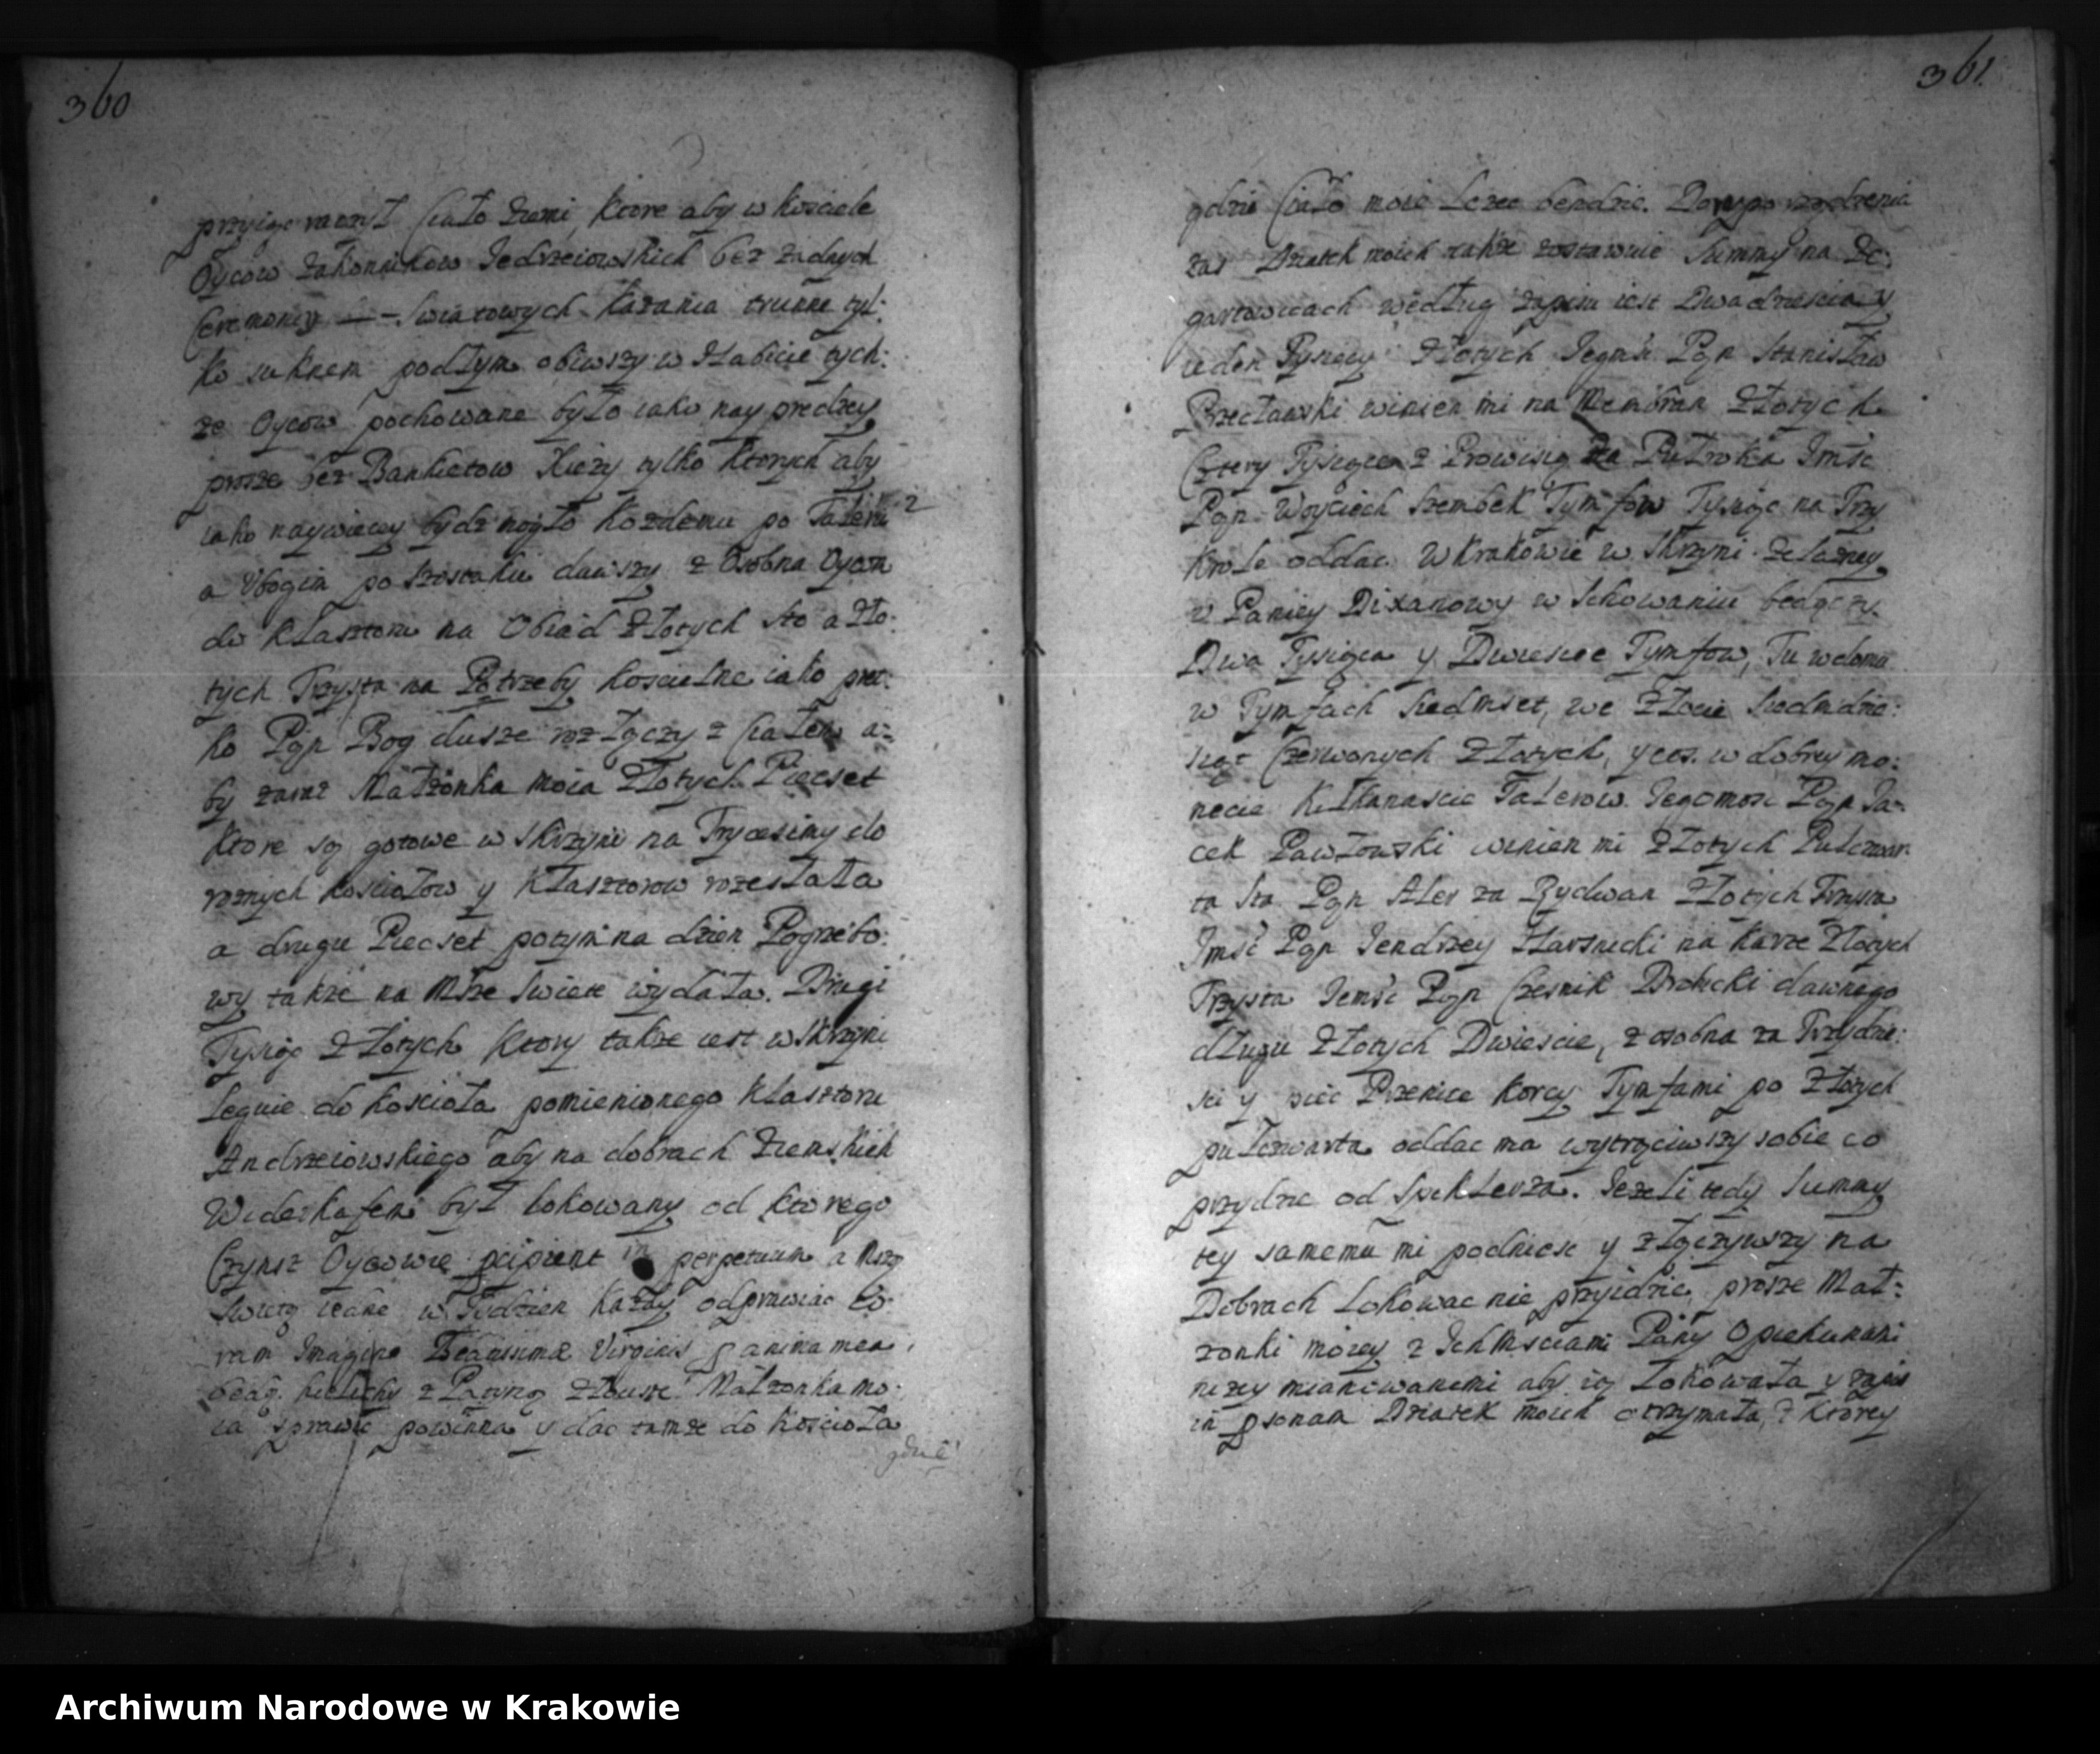 360
przyiąc raczył Ciało Ziemi, ktore aby w kosciele
Oycow Zakonnikow Jedrzeiowskich bez zadnych
Ceremoniy Swiatowych kazania trunne tyl:
ko suknem podłym obiwszy w Habicie tych:
ze Oycow pochowane było iako nayprędzey
prosze bez Bankietow Xięzy tylko ktorych aby
iako naywięcey bydz mogło kozdemu po Taleru 2
a Vbogim po szostaku dawszy z Osobna Oycom
do klasztoru na Obiad Złotych sto a Zło:
tych Trzysta na Potrzeby koscielne iako pręt:
ko Pan Bog dusze rozłączy z Ciałem a:
by zaraz Małzonka moia Złotych Piecset
ktore są gotowe w skrzyni na Trycesimy do
roznych kosciołow y klasztorow rozesłała
a drugie Piecset potym na dzien Pogrzebo:
wy takze na Msze Swiete wydała. Drugi
Tysiąc Złotych ktory takze iest w skrzyni
leguie do koscioła pomienionego klasztoru
Andrzeiowskiego aby na dobrach Ziemskich
Widerkafem był lokowany od ktorego
Czynsz Oycowie pcipient in perpetuum a Mszą
Swietą iedne w Tydzien kazdy odprawiac Co:
ram Imagine Beatissimæ Virginis p anima mea,
kielichy z Patyną Małzonka mo:
ia sprawic powinna y dac tamze do koscioła
gdzie
361.
gdzie Ciało moie lezec bendzie. Do
zas Dziatek moich takze zostawuie Summy na Ze:
gartowicach według zapisu iest Dwadziescia y
ieden Tysięcy Złotych Jegmsc Pan Stanisław
Brzecławski winien mi na Membran Złotych
Cztery Tysiące z Prowisią Za Puł roka Jmsc
Pan Woyciech Szembek Tymfow Tysiąc na Trzy
Krole oddac. W Krakowie w Skrzyni Zelazney
v Paniey Dixanowy w Schowaniu będączy.
Dwa Tysiąca y Dwiescie Tymfow, Tu w domu
w Tymfach Siedmset, we Złocie Siedmdzie:
siąt Czerwonych Złotych, y cos w dobrey mo:
necie Kilkanascie Talerow. Jegomosc Pan Ja:
cek Pawłowski winien mi Złotych Pułczwar:
ta sta Pan Aler za Rydwan Złotych Trzysta
Jmsc Pan Jendrzey Harsnicki na karze Złotych
Trzysta Jemsc Pan Czesnik Brolnicki dawnego
długu Złotych Dwiescie, z osobna za Trzydzie:
sci y piec Przenice korcy Tymfami po Złotych
pułczwarta oddac ma wytrąciwszy sobie co
przydzie od Spichlerza. Jezeli tedy Summy
tey samemu mi podniesc y złączywszy na
Dobrach lokowac nie przyidzie, prosze Mał:
zonki moiey z Ichmsciami Pany Opiekunami
nizey mianowanemi aby ią lokowała y zapis
in psonam Dziatek moich otrzymała, z ktorey
Archiwum Narodowe w Krakowie